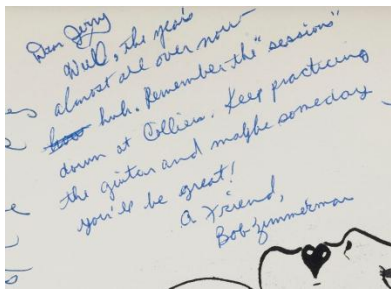 Dear Jerry
Well, the year's
almost all over now
huh. Remember the "sessions"
down at Colliers. Keep practicing
the guitar and maybe someday
you'll be great!
A Friend,
Bob Zimmerman